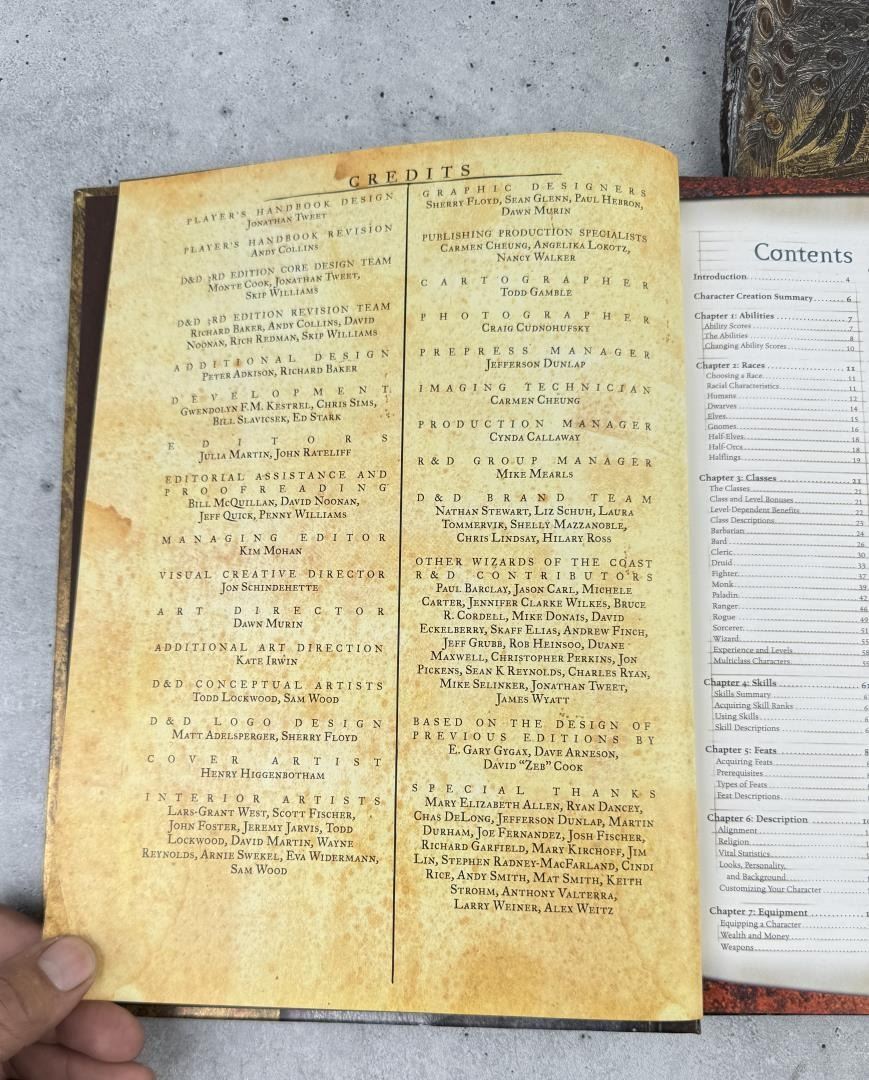 CREDITS
PLAYER'S HANDBOOK DESIGN
JONATHAN TWEET
PLAYER'S HANDBOOK REVISION
ANDY COLLINS
D&D 3RD EDITION CORE DESIGN TEAM
MONTE COOK, JONATHAN TWEET,
SKIP WILLIAMS
D&D 3RD EDITION REVISION TEAM
RICHARD BAKER, ANDY COLLINS, DAVID
NOONAN, RICH REDMAN, SKIP WILLIAMS
ADDITIONAL DESIGN
PETER ADKISON, RICHARD BAKER
DEVELOPMENT
GWENDOLYN F.M. KESTREL, CHRIS SIMS,
BILL SLAVICSEK, ED STARK
EDITORS
JULIA MARTIN, JOHN RATELIFF
EDITORIAL ASSISTANCE AND
PROOFREADING
BILL MCQUILLAN, DAVID NOONAN,
JEFF QUICK, PENNY WILLIAMS
MANAGING EDITOR
KIM MOHAN
VISUAL CREATIVE DIRECTOR
JON SCHINDEHETTE
ART DIRECTOR
DAWN MURIN
ADDITIONAL ART DIRECTION
KATE IRWIN
D&D CONCEPTUAL ARTISTS
TODD LOCKWOOD, SAM WOOD
D&D LOGO DESIGN
MATT ADELSPERGER, SHERRY FLOYD
COVER ARTIST
HENRY HIGGENBOTHAM
INTERIOR ARTISTS
LARS-GRANT WEST, SCOTT FISCHER,
JOHN FOSTER, JEREMY JARVIS, TODD
LOCKWOOD, DAVID MARTIN, WAYNE
REYNOLDS, ARNIE SWEKEL, EVA WIDERMANN,
SAM WOOD
GRAPHIC DESIGNERS
SHERRY FLOYD, SEAN GLENN, PAUL HEBRON,
DAWN MURIN
PUBLISHING PRODUCTION SPECIALISTS
CARMEN CHEUNG, ANGELIKA LOKOTZ,
NANCY WALKER
CARTOGRAPHER
TODD GAMBLE
PHOTOGRAPHER
CRAIG CUDNOHUFSKY
PREPRESS MANAGER
JEFFERSON DUNLAP
IMAGING TECHNICIAN
CARMEN CHEUNG
PRODUCTION MANAGER
CYNDA CALLAWAY
R&D GROUP MANAGER
MIKE MEARLS
D&D BRAND TEAM
NATHAN STEWART, LIZ SCHUH, LAURA
TOMMERVIK, SHELLY MAZZANOBLE,
CHRIS LINDSAY, HILARY ROSS
OTHER WIZARDS OF THE COAST
R&D CONTRIBUTORS
PAUL BARCLAY, JASON CARL, MICHELE
CARTER, JENNIFER CLARKE WILKES, BRUCE
R. CORDELL, MIKE DONAIS, DAVID
ECKELBERRY, SKAFF ELIAS, ANDREW FINCH,
JEFF GRUBB, ROB HEINSOO, DUANE
MAXWELL, CHRISTOPHER PERKINS, JON
PICKENS, SEAN K REYNOLDS, CHARLES RYAN,
MIKE SELINKER, JONATHAN TWEET,
JAMES WYATT
BASED ON THE DESIGN OF
PREVIOUS EDITIONS BY
E. GARY GYGAX, DAVE ARNESON,
DAVID "ZEB" COOK
SPECIAL THANKS
MARY ELIZABETH ALLEN, RYAN DANCEY,
CHAS DELONG, JEFFERSON DUNLAP, MARTIN
DURHAM, JOE FERNANDEZ, JOSH FISCHER,
RICHARD GARFIELD, MARY KIRCHOFF, JIM
LIN, STEPHEN RADNEY-MACFARLAND, CINDI
RICE, ANDY SMITH, MAT SMITH, KEITH
STROHM, ANTHONY VALTERRA,
LARRY WEINER, ALEX WEITZ
Contents
Introduction 4
Character Creation Summary 6
Chapter 1: Abilities 7
Ability Scores 7
The Abilities 8
Changing Ability Scores 10
Chapter 2: Races 11
Choosing a Race 11
Racial Characteristics 11
Humans 12
Dwarves 14
Elves 15
Gnomes 16
Half-Elves 18
Half-Orcs 18
Halflings 19
Chapter 3: Classes 21
The Classes 21
Class and Level Bonuses 21
Level-Dependent Benefits 22
Class Descriptions 23
Barbarian 24
Bard 26
Cleric 30
Druid 33
Fighter 37
Monk 39
Paladin 42
Ranger 46
Rogue 49
Sorcerer 51
Wizard 55
Experience and Levels 58
Multiclass Characters 59
Chapter 4: Skills
Skills Summary
Acquiring Skill Ranks
Using Skills
Skill Descriptions
Chapter 5: Feats
Acquiring Feats
Prerequisites
Types of Feats
Feat Descriptions
Chapter 6: Description
Alignment
Religion
Vital Statistics
Looks, Personality,
and Background
Customizing Your Character
Chapter 7: Equipment
Equipping a Character
Wealth and Money
Weapons